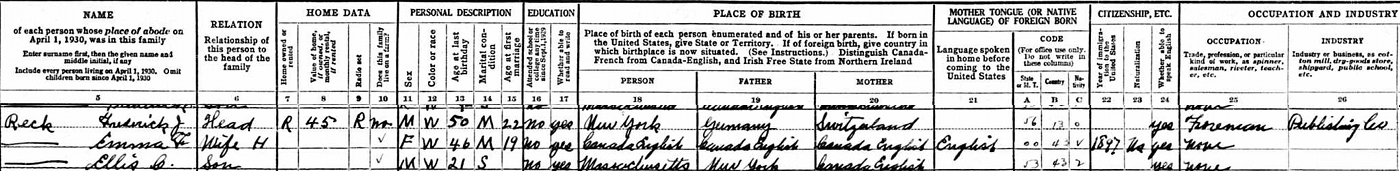 NAME RELATION HOME DATA PERSONAL DESCRIPTION EDUCATION PLACE OF BIRTH MOTHER TONGUE (OR NATIVE LANGUAGE) OF FOREIGN BORN CITIZENSHIP, ETC. OCCUPATION AND INDUSTRY
of each person whose place of abode on April 1, 1930, was in this family
Enter surname first, then the given name and middle initial, if any
Include every person living on April 1, 1930. Omit children born since April 1, 1930
Relationship of this person to the head of the family
Home owned or rented
Value of home, if owned, or monthly rental, if rented
Radio set
Does this family live on a farm?
Sex
Color or race
Age at last birthday
Marital condition
Age at first marriage
Attended school or college any time since Sept. 1, 1929
Whether able to read and write
Place of birth of each person enumerated and of his or her parents. If born in the United States, give State or Territory. If of foreign birth, give country in which birthplace is now situated. (See Instructions.) Distinguish Canada-French from Canada-English, and Irish Free State from Northern Ireland
PERSON FATHER MOTHER
Language spoken in home before coming to the United States
CODE
(For office use only. Do not write in these columns)
State or M. T. Country Nativity
Year of immigration to the United States
Naturalization
Whether able to speak English
OCCUPATION
Trade, profession, or particular kind of work, as spinner, salesman, riveter, teacher, etc.
INDUSTRY
Industry or business, as cotton mill, dry-goods store, shipyard, public school, etc.
5 6 7 8 9 10 11 12 13 14 15 16 17 18 19 20 21 A B C 22 23 24 25 26
Reck Fredrick J. Head R 45 R no M W 50 M 22 no yes New York Germany Switzerland 56 13 0 yes Foreman Publishing Co
Emma F Wife H F W 46 M 19 no yes Canada English Canada English Canada English English 00 43 V 1897 Na yes none
Ellis C. Son M W 21 S no yes Massachusetts New York Canada English 53 43 2 yes none